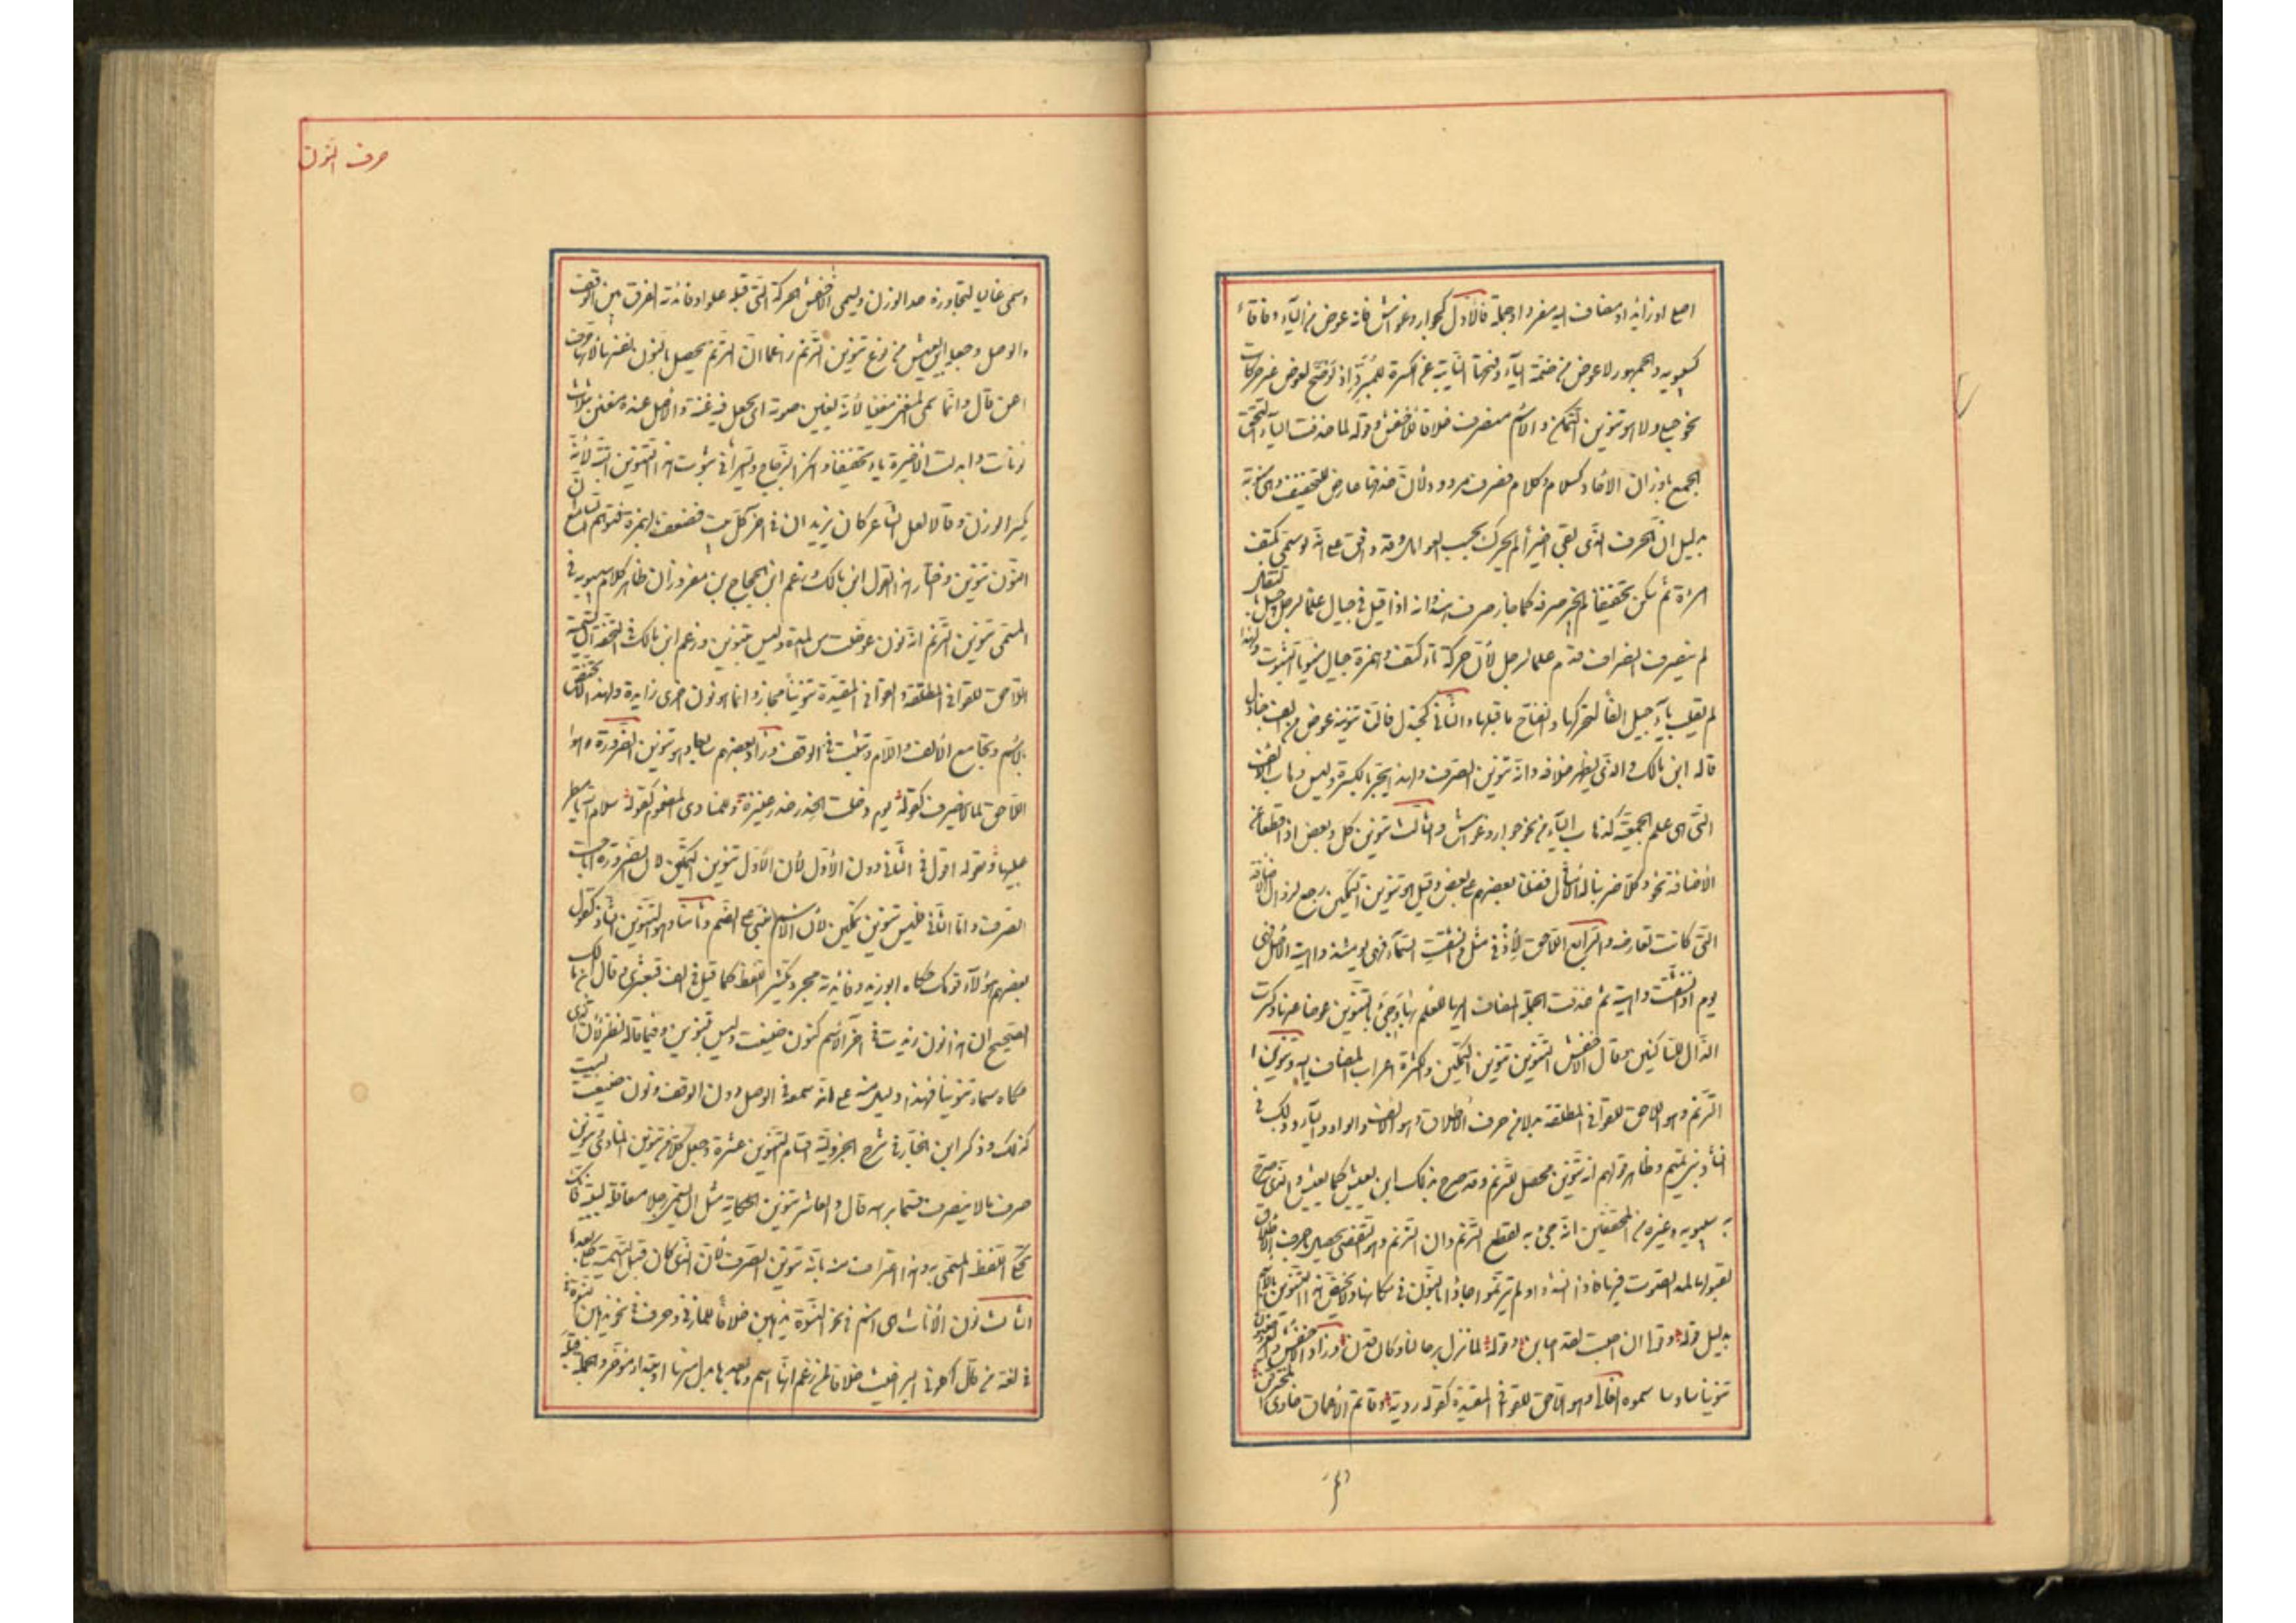 اصلى او زائد او مضاف اليه مفرد او جملة فالاول كجوار وغواش فانه عوض من الياء وفاقا
لسيبويه والجمهور لا عوض من ضمة الياء وفتحتها النايبة عن الكسرة للمبرد اذ لو صح لعوض عن حركات
نحو حبلى ولا هو تنوين التمكن والاسم منصرف خلافا للاخفش وقوله لما حذفت الياء التحق
الجمع باوزان الآحاد كسلام وكلام فصرف مردود لأن حذفها عارض للتخفيف وهى منوية
بدليل ان الحرف الذى بقى اخيرا لم يحرك بحسب العوامل وقد وافق على انه لو سمى بكتف
امرأة ثم سكن تخفيفا لم يجز صرفه كما جاز صرف هند وانه اذا قيل فى جيال علما لرجل جيل بالنقل
لم ينصرف انصراف قدم علما لرجل لأن حركة تاء كتف وهمزة جيال منويا الثبوت ولهذا
لم تقلب ياء جيل الفا لتحركها وانفتاح ما قبلها والثانى كجندل فان تنوينه عوض من الف جنادل
قاله ابن مالك والذى يظهر خلافه وانه تنوين الصرف ولهذا يجر بالكسرة وليس ذهاب الالف
التى هى علم الجمعية كذهاب الياء من نحو جوار وغواش والثالث تنوين كل وبعض اذا قطعا عن
الأضافة نحو وكلا ضربنا له الأمثال فضلنا بعضهم على بعض وقيل هو تنوين التمكين رجع لزوال الاضافة
التى كانت تعارضه والرابع اللاحق لإذ فى مثل وانشقت السماء فهى يومئذ واهية الأصل فهى
يوم اذ انشقت واهية ثم حذفت الجملة المضاف اليها للعلم بها وجئ بالتنوين عوضا عنها وكسرت
الذال للساكنين وقال الأخفش التنوين تنوين التمكين والكسرة اعراب المضاف اليه وتنوين
الترنم وهو اللاحق للقوافى المطلقة بدلا من حرف الأطلاق وهو الالف والواو والياء وذلك فى
انشاد بنى تميم وظاهر قولهم انه تنوين محصل للترنم وقد صرح بذلك ابن يعيش كما يعيش والذى صرح
به سيبويه وغيره من المحققين انه جئ به لقطع الترنم وان الترنم وهو التغنى يحصل باحرف الاطلاق
لقبولها لمد الصوت فيها فاذا انشدوا ولم يترنموا جاؤا بالنون فى مكانها ولا يختص هذا التنوين بالاسم
بدليل قوله وقولى ان اصبت لقد اصابن وقوله لما تزل برحالنا وكأن قدن وزاد الاخفش والعروضيون
تنوينا سادسا سموه الغالى وهو اللاحق للقوافى المقيدة كقوله رؤبة وقاتم الأعماق خاوى المخترقن
حرف النون
وسمى غاليا لتجاوزه حد الوزن ويسمى الأخفش الحركة التى قبله غلوا وفائدته الفرق بين الوقف
والوصل وجعله ابن يعيش من نوع تنوين الترنم زاعما ان الترنم يحصل بالنون نفسها لانها حرف
اغن قال وانما سمى المغنى مغنيا لأنه يغنن صوته اى يجعل فيه غنة والأصل عنده مغنن بثلاث
نونات وابدلت الأخيرة ياء تخفيفا وانكر الزجاج والسيرافى ثبوت هذا التنوين البتة لأنه
يكسر الوزن وقالا لعل الشاعر كان يزيد ان فى آخر كل بيت فضعف صوته بالهمزة فتوهم السامع ان
النون تنوين واختار هذا القول ابن مالك وزعم ابن الحجاج بن معزوز ان ظاهر كلام سيبويه فى
المسمى تنوين الترنم انه نون عوضت من المدة وليس بتنوين وزعم ابن مالك فى التحفة ان تسمية
اللاحق للقوافى المطلقة والقوافى المقيدة تنوينا مجاز وانما هو نون اخرى زايدة ولهذا لا يختص
بالاسم وتجامع الألف واللام وتثبت فى الوقف وزاد بعضهم سابعا وهو تنوين الضرورة وهو
اللاحق لما لا ينصرف كقوله ويوم دخلت الخدر خدر عنيزة وللمنادى المضموم كقوله سلام الله يا مطر
عليها وبقوله اقول فى الثانى دون الأول لأن الأول تنوين التمكين لان الضرورة اباحت
الصرف واما الثانى فليس تنوين تمكين لأن الاسم مبنى على الضم وثامنا وهو التنوين الشاذ كقول
بعضهم هؤلاء قومك حكاه ابو زيد وفائدته مجرد تكثير اللفظ كما قيل فى الف قبعثرى وقال ابن مالك
الصحيح ان هذا نون زيدت فى آخر الاسم كنون ضيفن وليس بتنوين وفيما قاله نظر لأن الذى
حكاه سماه تنوينا فهذا دليل منه على انه سمعه فى الوصل دون الوقف ونون ضيفن ليست
كذلك وذكر ابن الخباز فى شرح الجزولية اقسام التنوين عشرة وجعل كلا من تنوين المنادى وتنوين
صرف ما لا ينصرف قسما برأسه قال والعاشر تنوين الحكاية مثل ان تسمى رجلا بعاقلة لبيبة فانك
تحكى اللفظ المسمى به وهذا اعتراف منه بانه تنوين الصرف لأن الذى كان قبل التسمية حكى بعدها
الثالث نون الأناث وهى اسم فى نحو النسوة يذهبن خلافا للمازنى وحرف فى نحو يذهبن النسوة
فى لغة من قال اكلونى البراغيث خلافا لمن زعم انها اسم وما بعدها بدل منها او مبتدأ مؤخر والجملة قبله